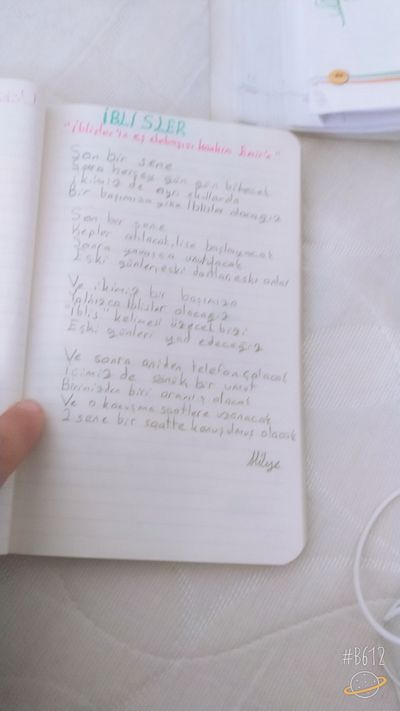 İBLİSLER
"İblisler'in eş
Son bir sene
Sonra herşey gün gün bitecek
İkimiz de ayrı okullarda
Bir başımıza yine İblisler olacağız
Son bir sene
Kepler atılacak, lise başlayacak
Sonra yavaşça unutulacak
Eski günler, eski dostlar, eski anlar
Ve ikimiz bir başımıza
Yalnızca İblisler olacağız
"İblis" kelimesi üzecek bizi
Eski günleri yad edeceğiz
Ve sonra aniden telefon çalacak
İçimiz de sönük bir umut
Birimizden biri aramış olacak
Ve o konuşma saatlere uzanacak
2 sene bir saatte konuşulmuş olacak
#B612